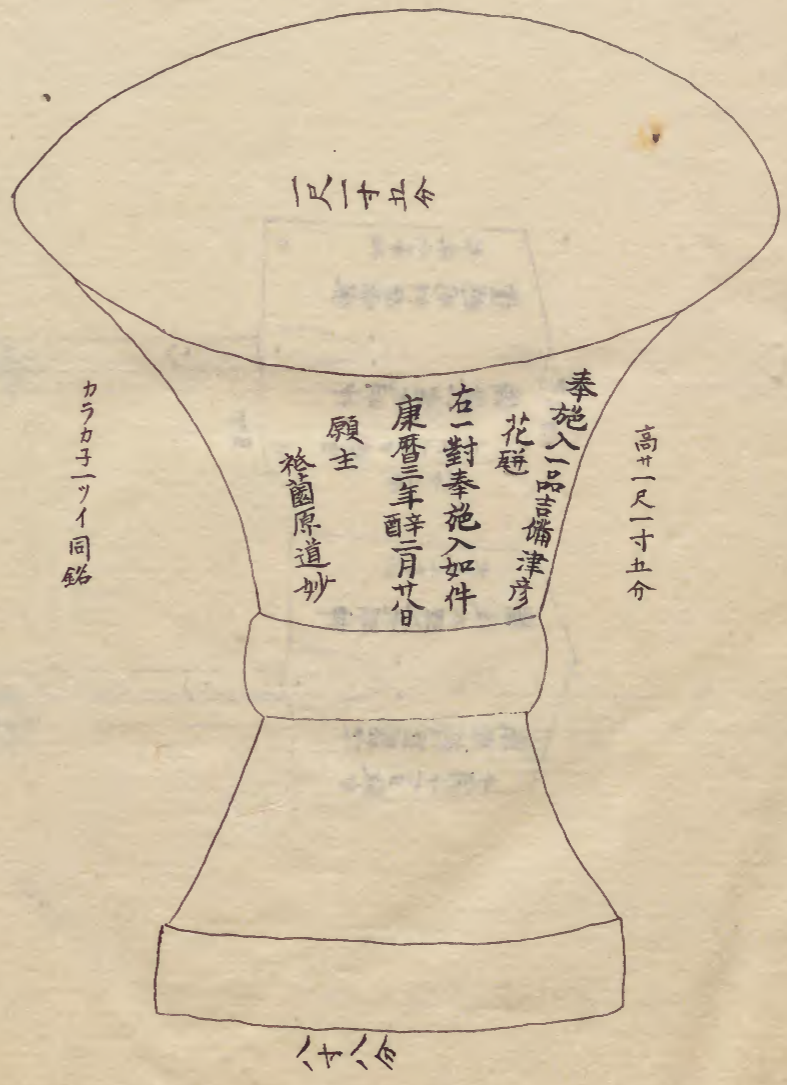 一尺一寸五分
高サ一尺一寸五分
奉施入一品吉備津彦
花瓶
右一對奉施入如件
康暦三年辛酉二月廿八日
願主
祇薗原道妙
カラカ子一ツイ同銘
八寸八分